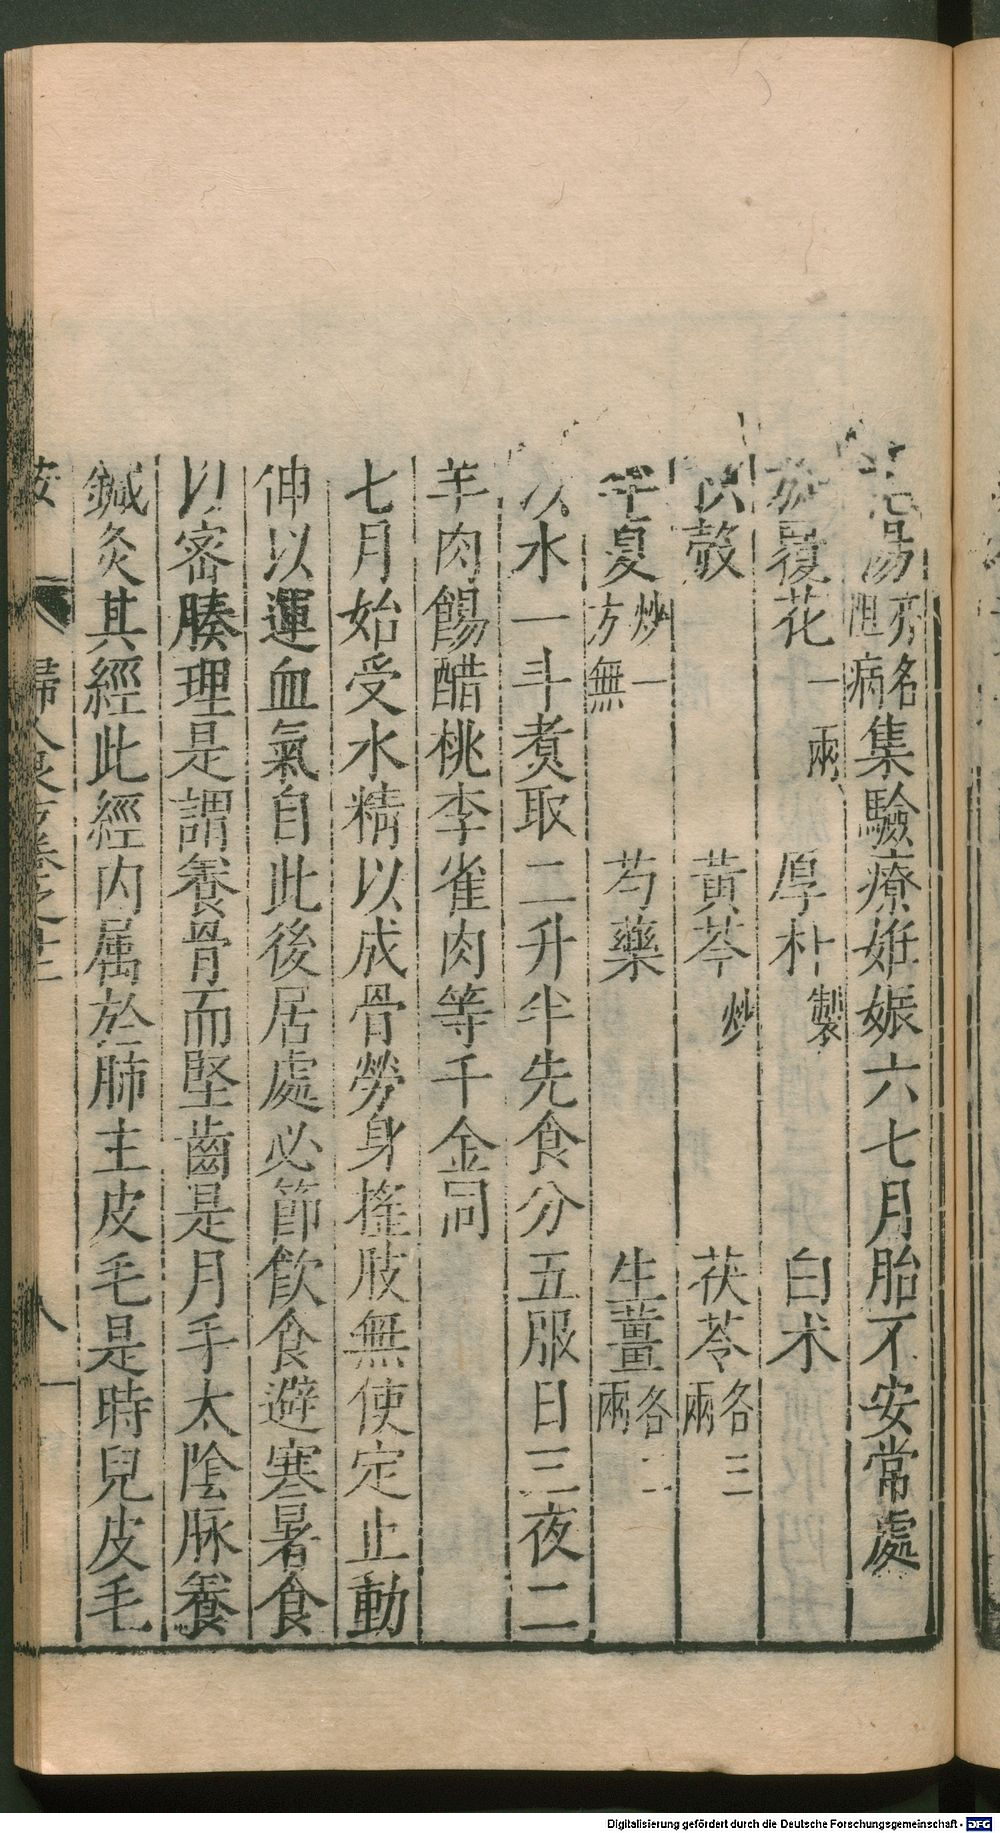 湯亦名阻病集驗療姙娠六七月胎不安常處
旋覆花一兩 厚朴製 白术
枳殼 黃芩炒 茯苓各三兩
半夏炒一方無 芍藥 生薑各二兩
以水一斗煑取二升半先食分五服日三夜二
羊肉餳醋桃李雀肉等千金同
七月始受水精以成骨勞身搖肢無使定止動
伸以運血氣自此後居處必節飲食避寒暑食
以密腠理是謂養骨而堅齒是月手太陰脉養
鍼灸其經此經内属於肺主皮毛是時兒皮毛
婦人良方卷之十二 八
Digitalisierung gefördert durch die Deutsche Forschungsgemeinschaft - DFG